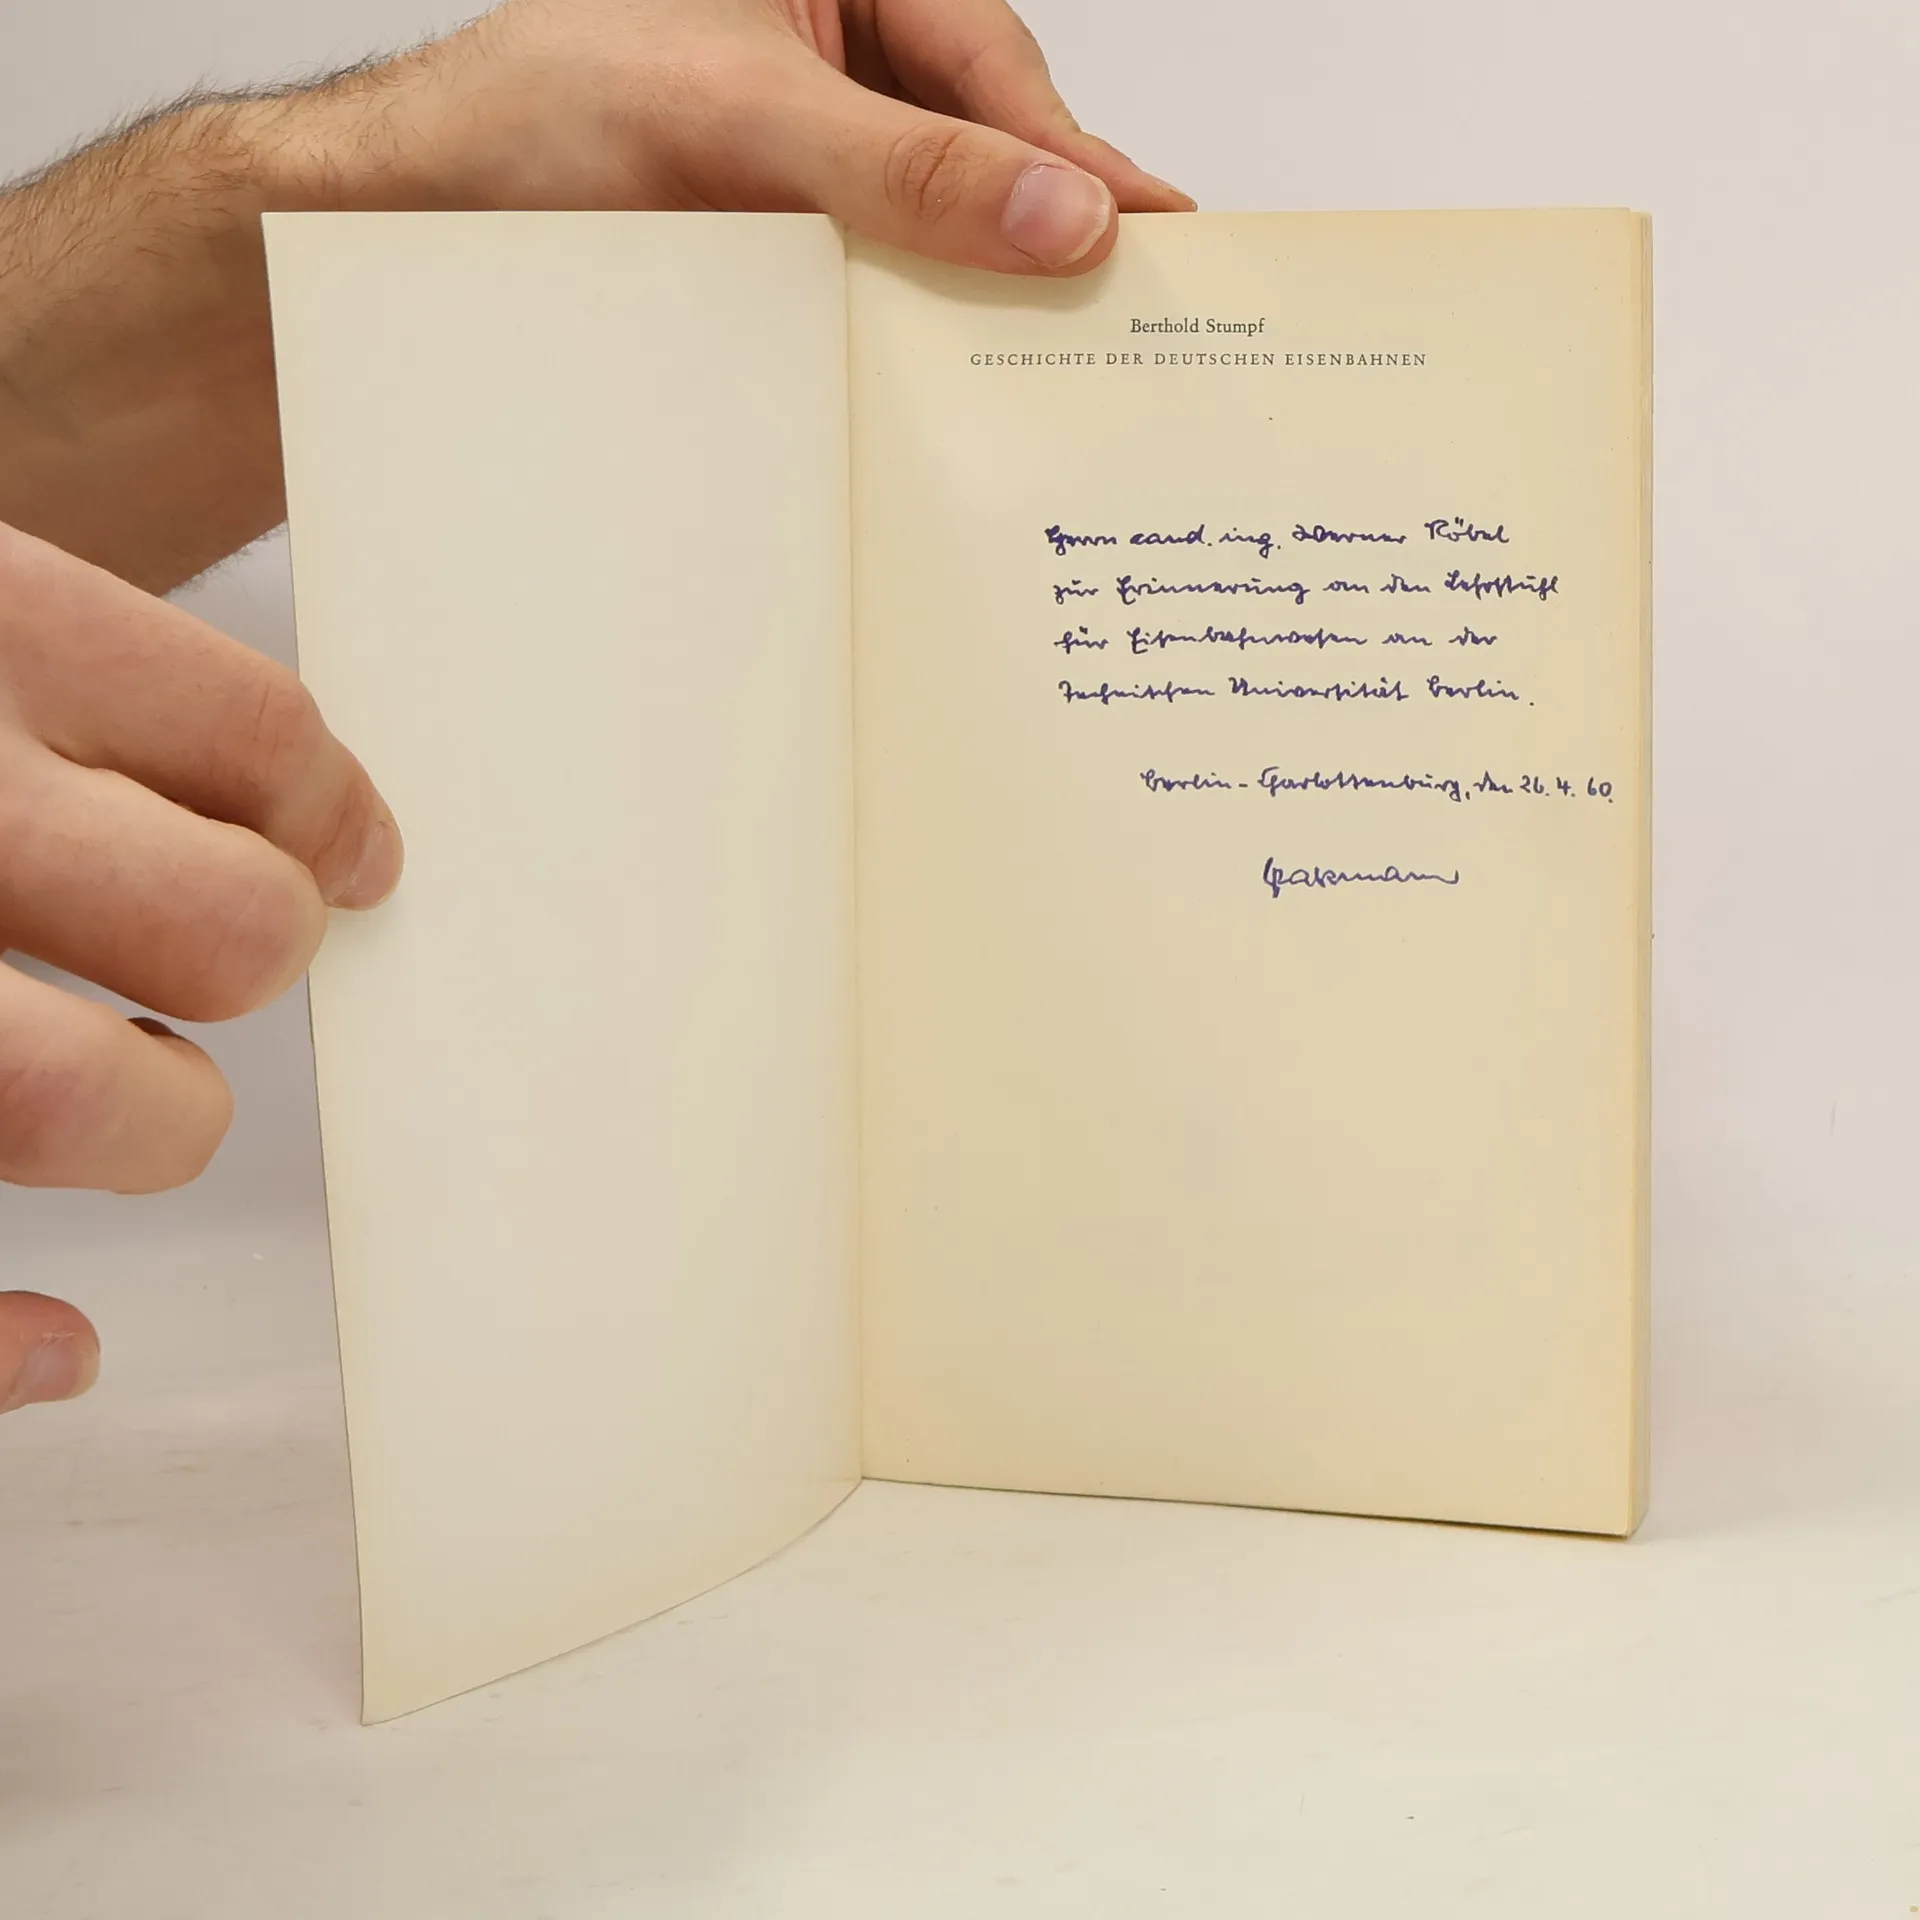 Berthold Stumpf
GESCHICHTE DER DEUTSCHEN EISENBAHNEN
Herrn cand. ing. Werner Röbel
zur Erinnerung an den Lehrstuhl
für Eisenbahnwesen an der
Technischen Universität Berlin.
Berlin-Charlottenburg, den 26. 4. 60.